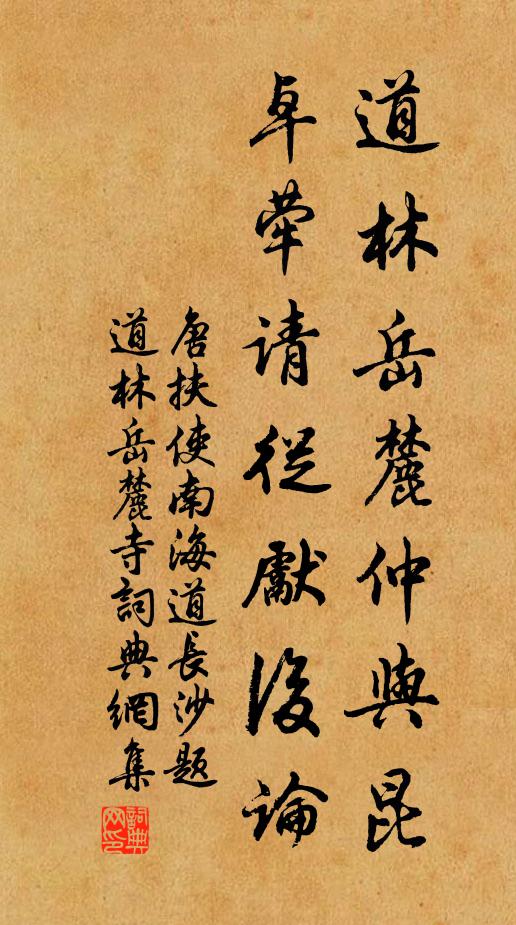 道林岳麓仲與昆
卓犖请從獻後論
唐扶使南海道長沙题
道林岳麓寺詞典網集
詞典网印